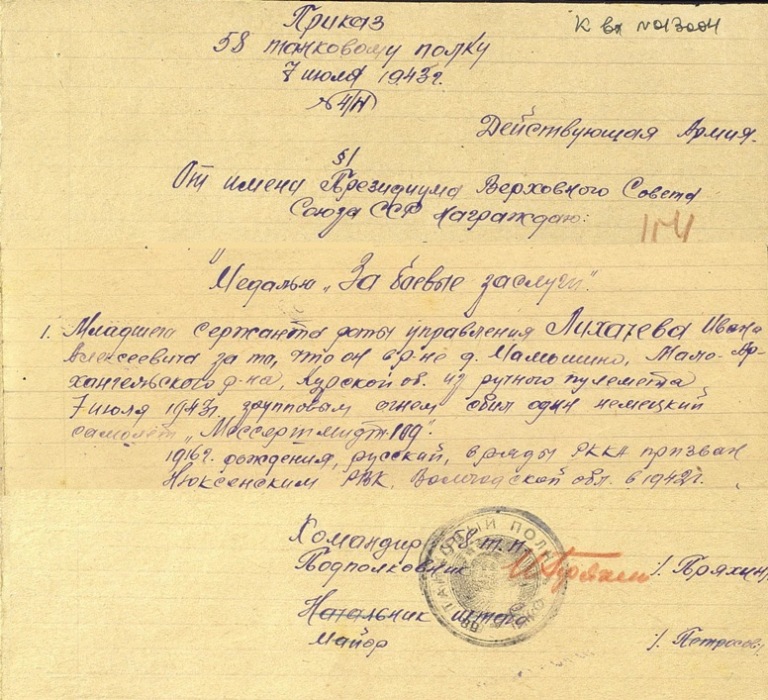 Приказ
К вх №013004
58 танковому полку
7 июля 1943г.
№4/Н
Действующая Армия.
§1
От имени Президиума Верховного Совета
Союза ССР награждаю:
Медалью „За боевые заслуги".
1. Младшего сержанта роты управления Лихачева Ивана
Алексеевича за то, что он в р-не д. Мамошино, Мало-Ар-
хангельского р-на, Курской об. из ручного пулемета
7 июля 1943г. групповым огнем сбил один немецкий
самолет „Мессершмидт 109".
1916г. рождения, русский, в ряды РККА призван
Нюксенским РВК, Вологодской обл. в 1942г.
Командир 58 т.п.
Подполковник /. Пряхин/
Начальник штаба
Майор /. Петросов/
ТАНКОВЫЙ ПОЛК